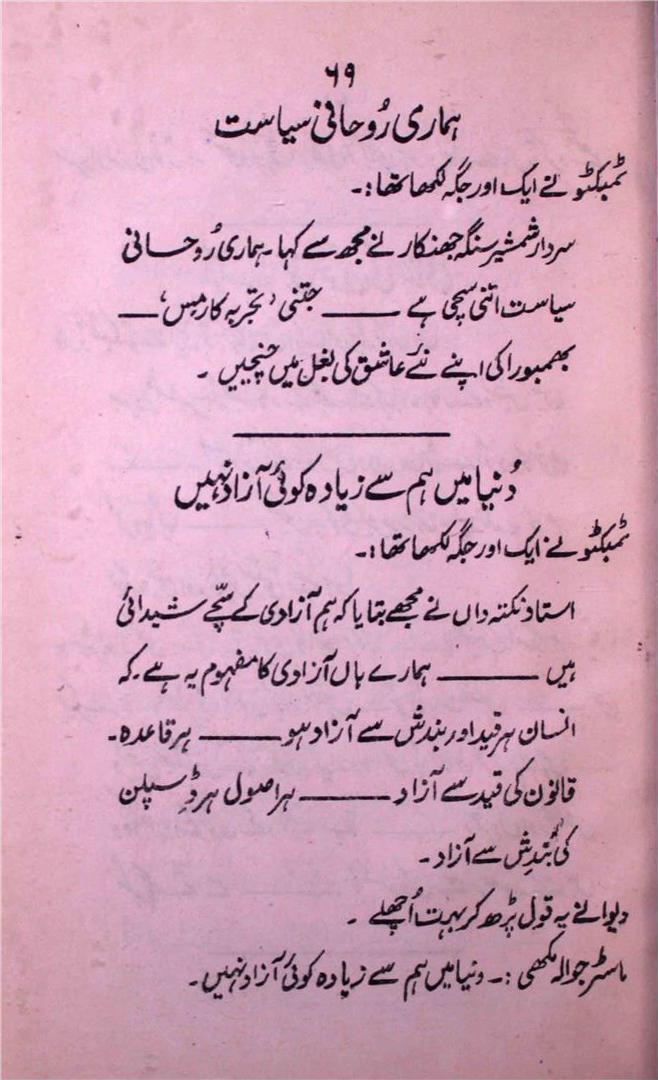 ۶۹
ہماری رُوحانی سیاست
ٹمبکٹو نے ایک اور جگہ لکھا تھا :۔
سردار شمشیر سنگھ جھنکار نے مجھ سے کہا۔ ہماری رُوحانی
سیاست اتنی سچی ہے ـــــــــ جتنی ’تجربہ کار مِس‘ ـــــ
بھمبورا کی اپنے نئے عاشق کی بغل میں چنچیں ۔
دُنیا میں ہم سے زیادہ کوئی آزاد نہیں
ٹمبکٹو نے ایک اور جگہ لکھا تھا :۔
استاد نکتہ داں نے مجھے بتایا کہ ہم آزادی کے سچّے شیدائی
ہیں ـــــــــ ہمارے ہاں آزادی کا مفہوم یہ ہے۔ کہ
انسان ہر قید اور بندش سے آزاد ہو ـــــــــ ہر قاعدہ۔
قانون کی قید سے آزاد ـــــــــ ہر اصول ہر ڈسپلن
کی بُندش سے آزاد ۔
دیوانے یہ قول پڑھ کر بہت اُچھلے ۔
ماسٹر جوالہ مکھی :۔ دنیا میں ہم سے زیادہ کوئی آزاد نہیں۔